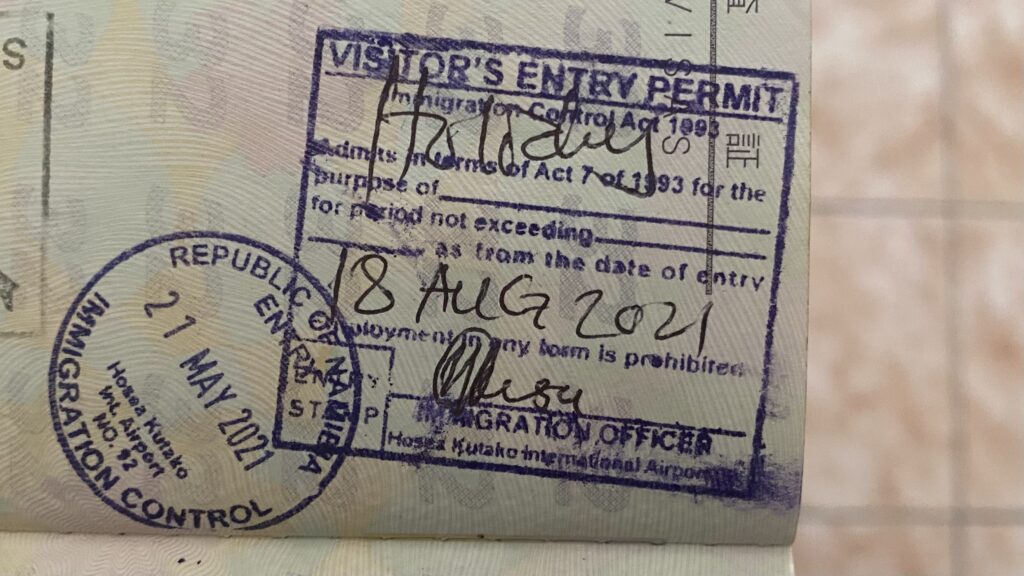 S
VISITOR'S ENTRY PERMIT
Immigration Control Act 1993
Holiday
Admits in terms of Act 7 of 1993 for the
purpose of
for period not exceeding
as from the date of entry
18 AUG 2021
Employment in any form is prohibited
ENTRY
STAMP
IMMIGRATION OFFICER
Hosea Kutako International Airport
REPUBLIC OF NAMIBIA
ENTRY
21 MAY 2021
Hosea Kutako
Int. Airport
NO. 92
IMMIGRATION CONTROL
VISAS
証